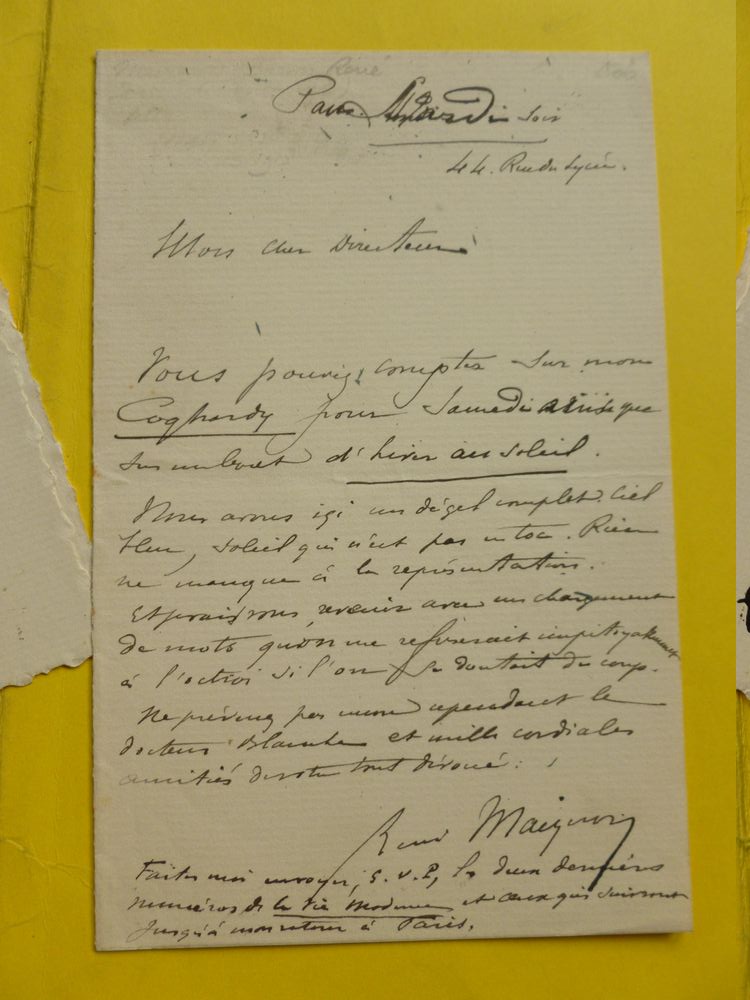 René
Pau Mardi soir
44. Rue du Lycée.
Mon cher Directeur
Vous pouvez compter sur mon
pour Samedi ainsi que
sur un d'hiver au soleil.
Nous avons ici un dégel complet. Ciel
bleu, soleil qui n'est pas en toc. Rien
ne manque à la représentation.
vous revenir avec un chargement
de mots qu'on me refuserait impitoyablement
à l'octroi si l'on se doutait du coup.
Ne prévenez pas cependant le
docteur Blanche et mille cordiales
amitiés de votre tout dévoué.
René Maizeroy
Faites moi envoyer, S.V.P, les deux derniers
numéros de la Vie Moderne et ceux qui suivront
jusqu'à mon retour à Paris.